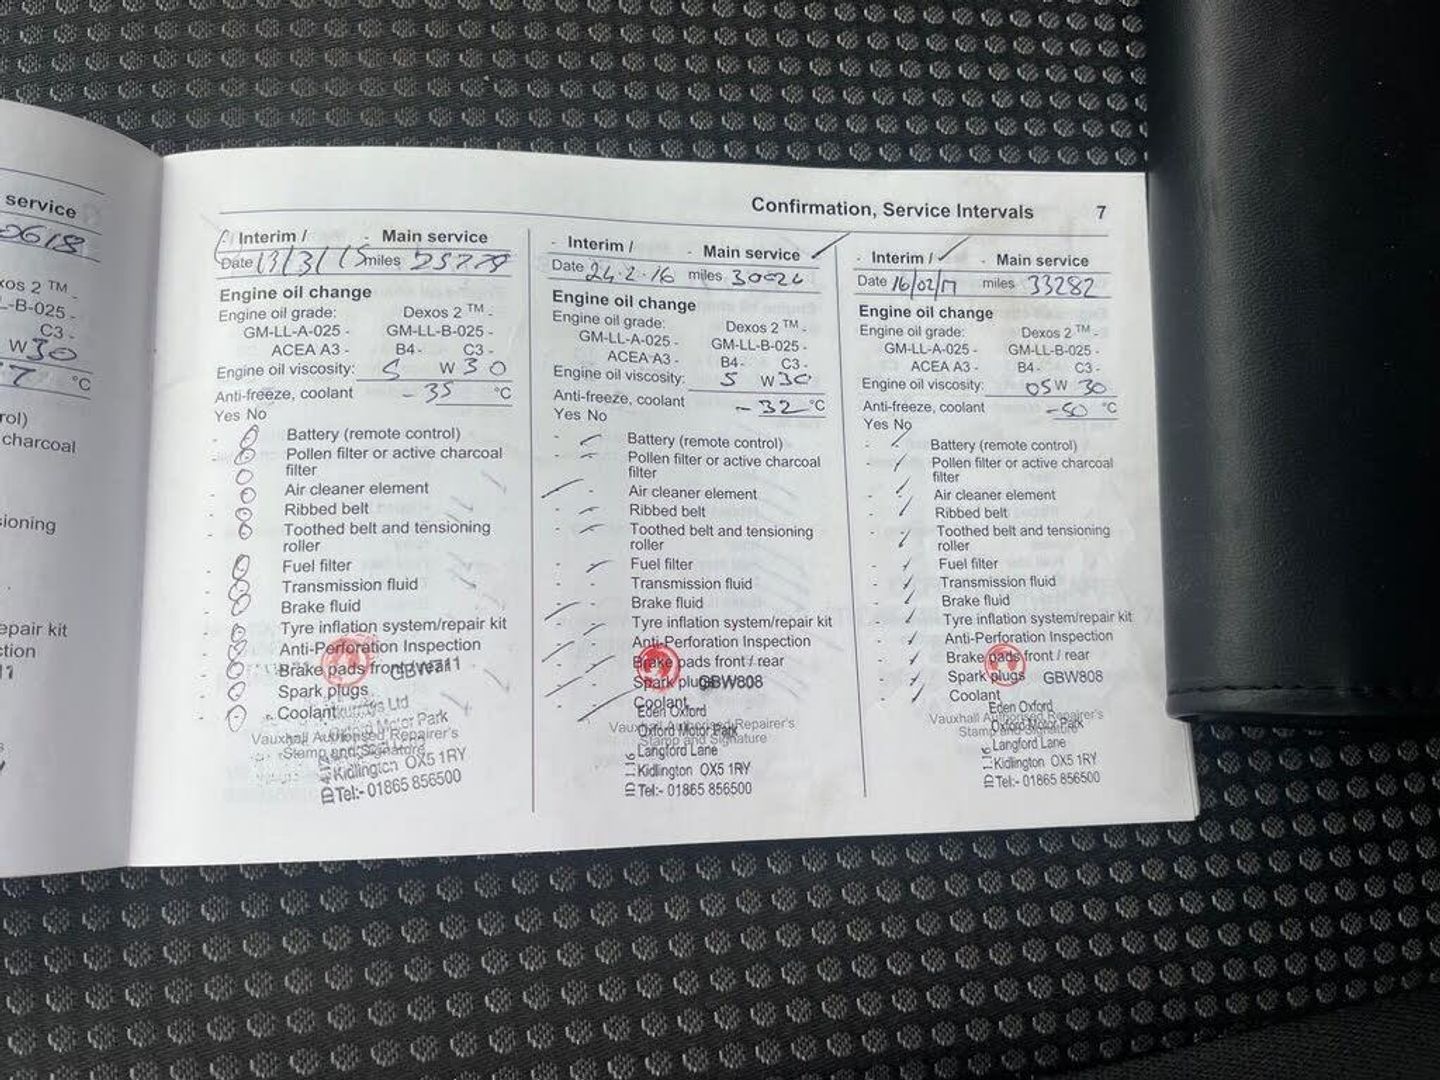 service
0618
xos 2 ™ -
L-B-025 -
C3 -
W 30
°C
rol)
charcoal
sioning
epair kit
ction
Confirmation, Service Intervals 7
Interim / - Main service
Date 13/3/15 miles
Engine oil change
Engine oil grade: Dexos 2 ™ -
GM-LL-A-025 - GM-LL-B-025 -
ACEA A3 - B4 - C3 -
Engine oil viscosity: 5 W 30
Anti-freeze, coolant -35 °C
Yes No
Battery (remote control)
Pollen filter or active charcoal
filter
Air cleaner element
Ribbed belt
Toothed belt and tensioning
roller
Fuel filter
Transmission fluid
Brake fluid
Tyre inflation system/repair kit
Anti-Perforation Inspection
Brake pads front / rear
GBW711
Spark plugs
Coolant
Ltd
Motor Park
Vauxhall Authorised Repairer's
Stamp and Signature
Kidlington OX5 1RY
Tel:- 01865 856500
- Interim / - Main service
Date 24.2.16 miles 30026
Engine oil change
Engine oil grade: Dexos 2 ™ -
GM-LL-A-025 - GM-LL-B-025 -
ACEA A3 - B4 - C3 -
Engine oil viscosity: 5 W 30
Anti-freeze, coolant -32 °C
Yes No
Battery (remote control)
Pollen filter or active charcoal
filter
Air cleaner element
Ribbed belt
Toothed belt and tensioning
roller
Fuel filter
Transmission fluid
Brake fluid
Tyre inflation system/repair kit
Anti-Perforation Inspection
Brake pads front / rear
Spark plugs GBW808
Coolant
Eden Oxford
Vauxhall Authorised Repairer's
Oxford Motor Park
Stamp and Signature
Langford Lane
Kidlington OX5 1RY
Tel:- 01865 856500
- Interim / - Main service
Date 16/02/17 miles 33282
Engine oil change
Engine oil grade: Dexos 2 ™ -
GM-LL-A-025 - GM-LL-B-025 -
ACEA A3 - B4 - C3 -
Engine oil viscosity: 05 W 30
Anti-freeze, coolant -50 °C
Yes No
Battery (remote control)
Pollen filter or active charcoal
filter
Air cleaner element
Ribbed belt
Toothed belt and tensioning
roller
Fuel filter
Transmission fluid
Brake fluid
Tyre inflation system/repair kit
Anti-Perforation Inspection
Brake pads front / rear
Spark plugs GBW808
Coolant
Eden Oxford
Vauxhall Authorised Repairer's
Oxford Motor Park
Stamp and Signature
Langford Lane
Kidlington OX5 1RY
Tel:- 01865 856500